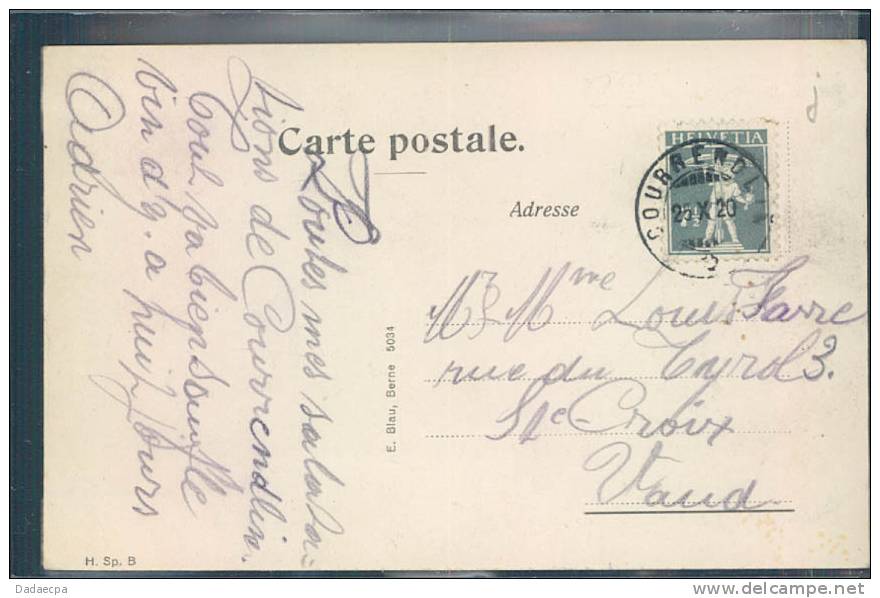 Carte postale.
Toutes mes saluta-
tions de Courrendlin.
Tout va bien
bin d'y. a huit jours
Adrien
E. Blau, Berne 5034
H. Sp. B
Adresse
HELVETIA
7½
COURRENDLIN
25 X 20
Mr Mme Louis Favre
rue du Tyrol 3.
Ste-Croix
Vaud
Dadaecpa
www.delcampe.net